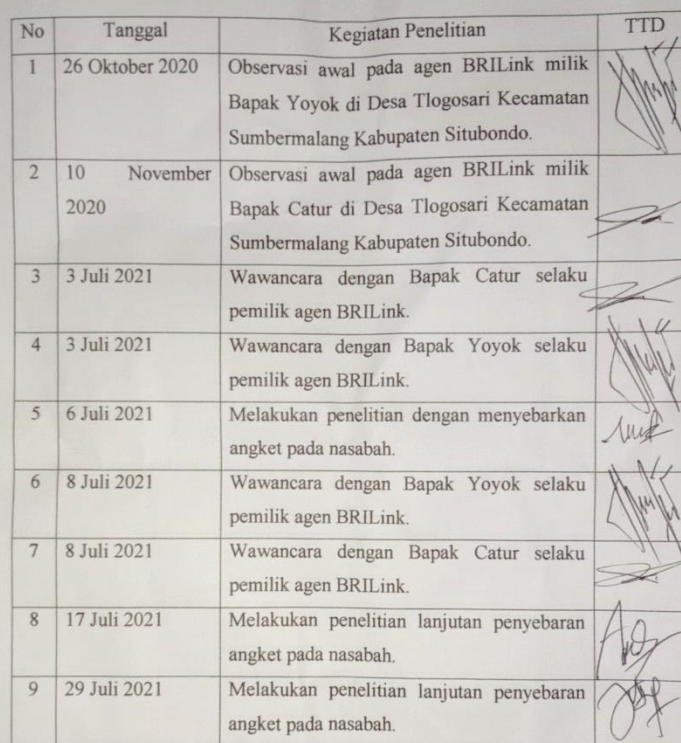 No Tanggal Kegiatan Penelitian TTD
1 26 Oktober 2020 Observasi awal pada agen BRILink milik
Bapak Yoyok di Desa Tlogosari Kecamatan
Sumbermalang Kabupaten Situbondo.
2 10 November Observasi awal pada agen BRILink milik
2020 Bapak Catur di Desa Tlogosari Kecamatan
Sumbermalang Kabupaten Situbondo.
3 3 Juli 2021 Wawancara dengan Bapak Catur selaku
pemilik agen BRILink.
4 3 Juli 2021 Wawancara dengan Bapak Yoyok selaku
pemilik agen BRILink.
5 6 Juli 2021 Melakukan penelitian dengan menyebarkan
angket pada nasabah.
6 8 Juli 2021 Wawancara dengan Bapak Yoyok selaku
pemilik agen BRILink.
7 8 Juli 2021 Wawancara dengan Bapak Catur selaku
pemilik agen BRILink.
8 17 Juli 2021 Melakukan penelitian lanjutan penyebaran
angket pada nasabah.
9 29 Juli 2021 Melakukan penelitian lanjutan penyebaran
angket pada nasabah.